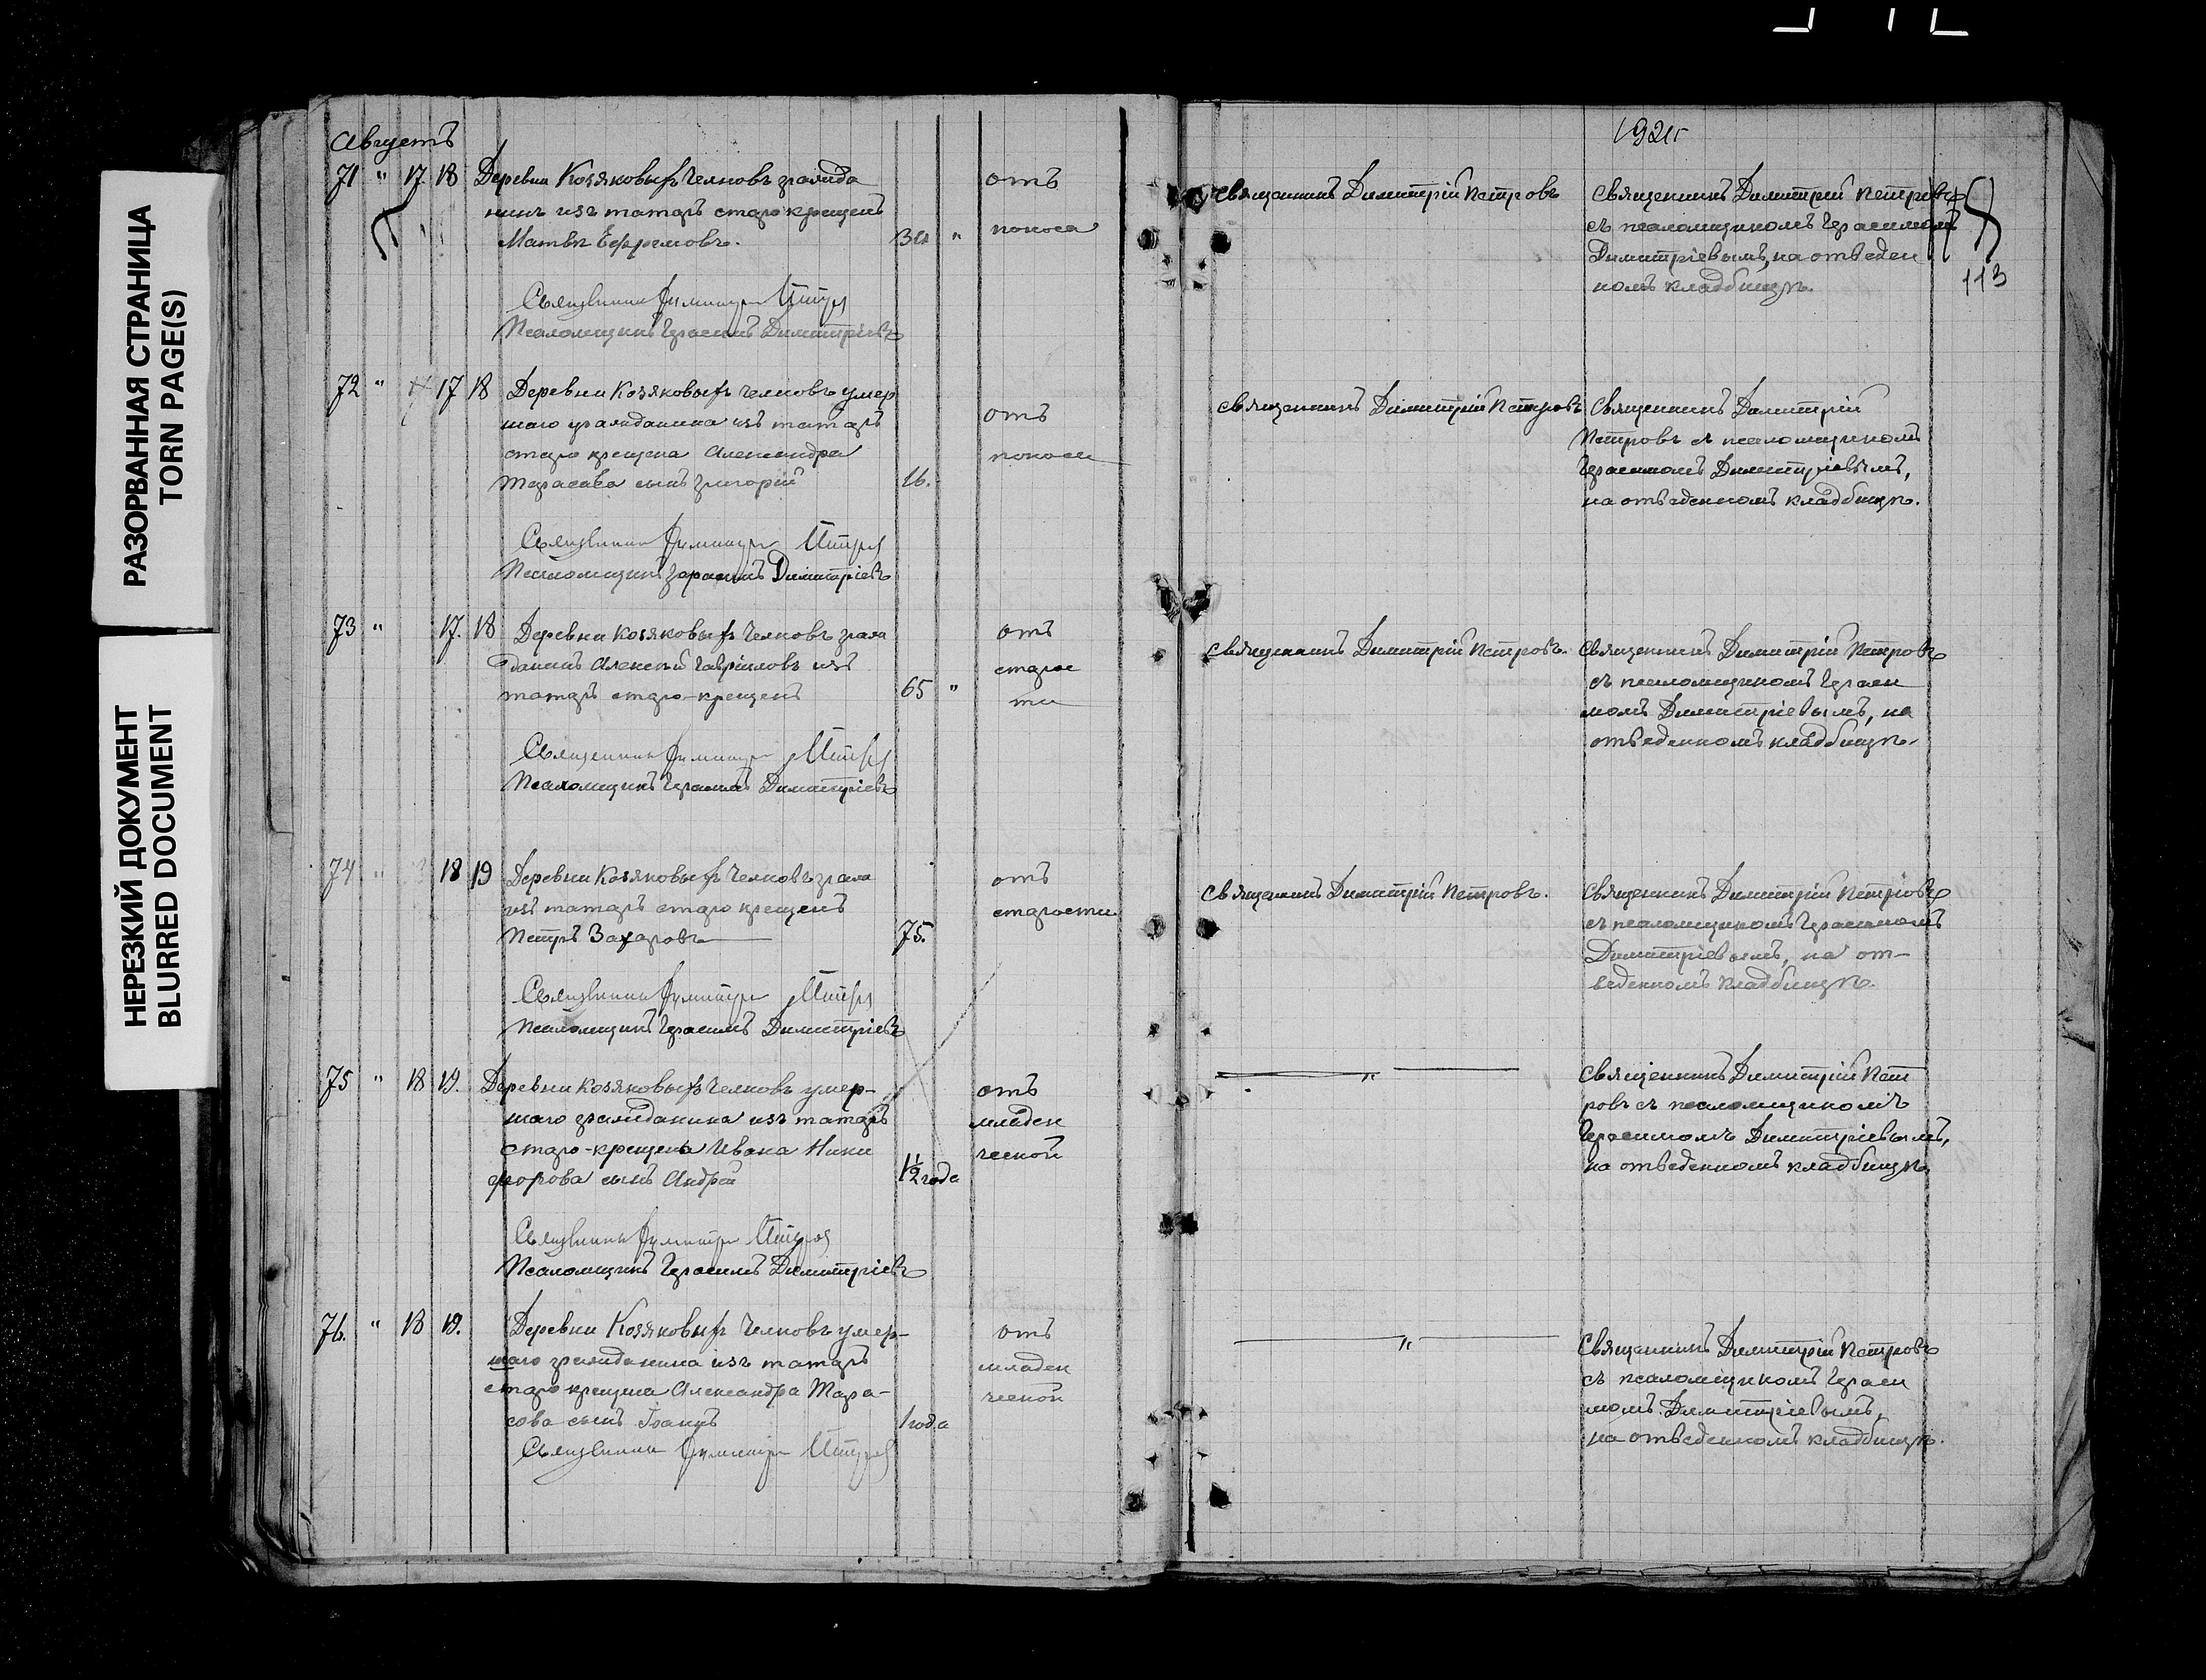 РАЗОРВАННАЯ СТРАНИЦА
TORN PAGE(S)
НЕРЕЗКИЙ ДОКУМЕНТ
BLURRED DOCUMENT
Августъ
71 " 17 18 Деревни Козяковыхъ Челновъ гражда
нинъ изъ татаръ старо крещенъ
Матвѣй Ефремовъ.
отъ
поноса
Псаломщикъ Герасимъ Димитріевъ
72 " 17 18 Деревни Козяковыхъ Челновъ умер
шаго гражданина изъ татаръ
старо крещена Александра
Тарасова сынъ Григорій
16.
отъ
поноса
Псаломщикъ Герасимъ Димитріевъ
73 " 17. 18 Деревни Козяковыхъ Челновъ граж
данинъ Алексѣй Гавріиловъ изъ
татаръ старо-крещенъ
65 "
отъ
старос
ти
Псаломщикъ Герасимъ Димитріевъ
74 " 18 19 Деревни Козяковыхъ Челновъ граж
изъ татаръ старо крещенъ
Петръ Захаровъ
75.
отъ
старости
Псаломщикъ Герасимъ Димитріевъ
75 " 18 19. Деревни Козяковыхъ Челновъ умер-
шаго гражданина изъ татаръ
старо-крещена Ивана Ники
форова сынъ Андрей
1½ года
отъ
младен
ческой
Псаломщикъ Герасимъ Димитріевъ
76. " 18 19. Деревни Козяковыхъ Челновъ умер-
шаго гражданина изъ татаръ
старо крещена Александра Тара-
сова сынъ Іоаннъ
1 года
отъ
младен
ческой
192
Священникъ Димитрій Петровъ
Священникъ Димитрій Петровъ
съ псаломщикомъ Герасимомъ
Димитріевымъ, на отведен
номъ кладбищѣ.
113
Священникъ Димитрій Петровъ
Священникъ Димитрій
Петровъ съ псаломщикомъ
Герасимомъ Димитріевымъ,
на отведенномъ кладбищѣ.
Священникъ Димитрій Петровъ.
Священникъ Димитрій Петровъ
съ псаломщикомъ Гераси
момъ Димитріевымъ, на
отведенномъ кладбищѣ.
Священникъ Димитрій Петровъ.
Священникъ Димитрій Петровъ
съ псаломщикомъ Герасимомъ
Димитріевымъ, на от-
веденномъ кладбищѣ.
"
Священникъ Димитрій Пет
ровъ съ псаломщикомъ
Герасимомъ Димитріевымъ,
на отведенномъ кладбищѣ
"
Священникъ Димитрій Петровъ
съ псаломщикомъ Гераси
момъ Димитріевымъ,
на отведенномъ кладбищѣ.